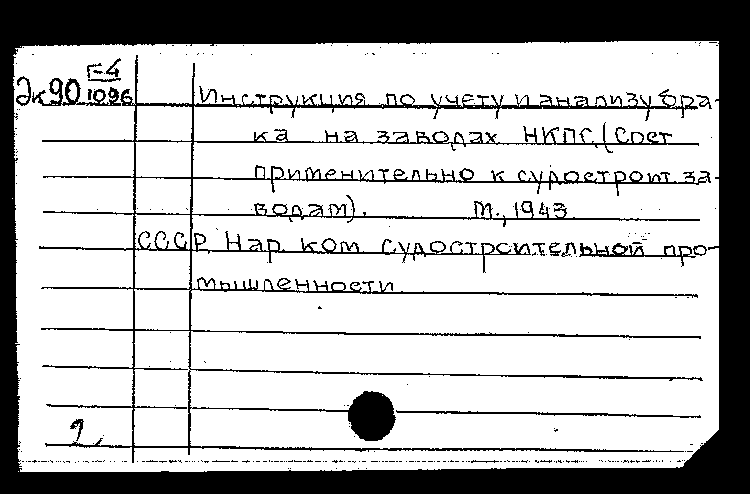 Г-4
Эк90 1096
Инструкция по учету и анализу бра-
ка на заводах НКПС. (Сост
применительно к судостроит. за-
водам). М., 1943
СССР Нар. ком. судостроительной про-
мышленности
2